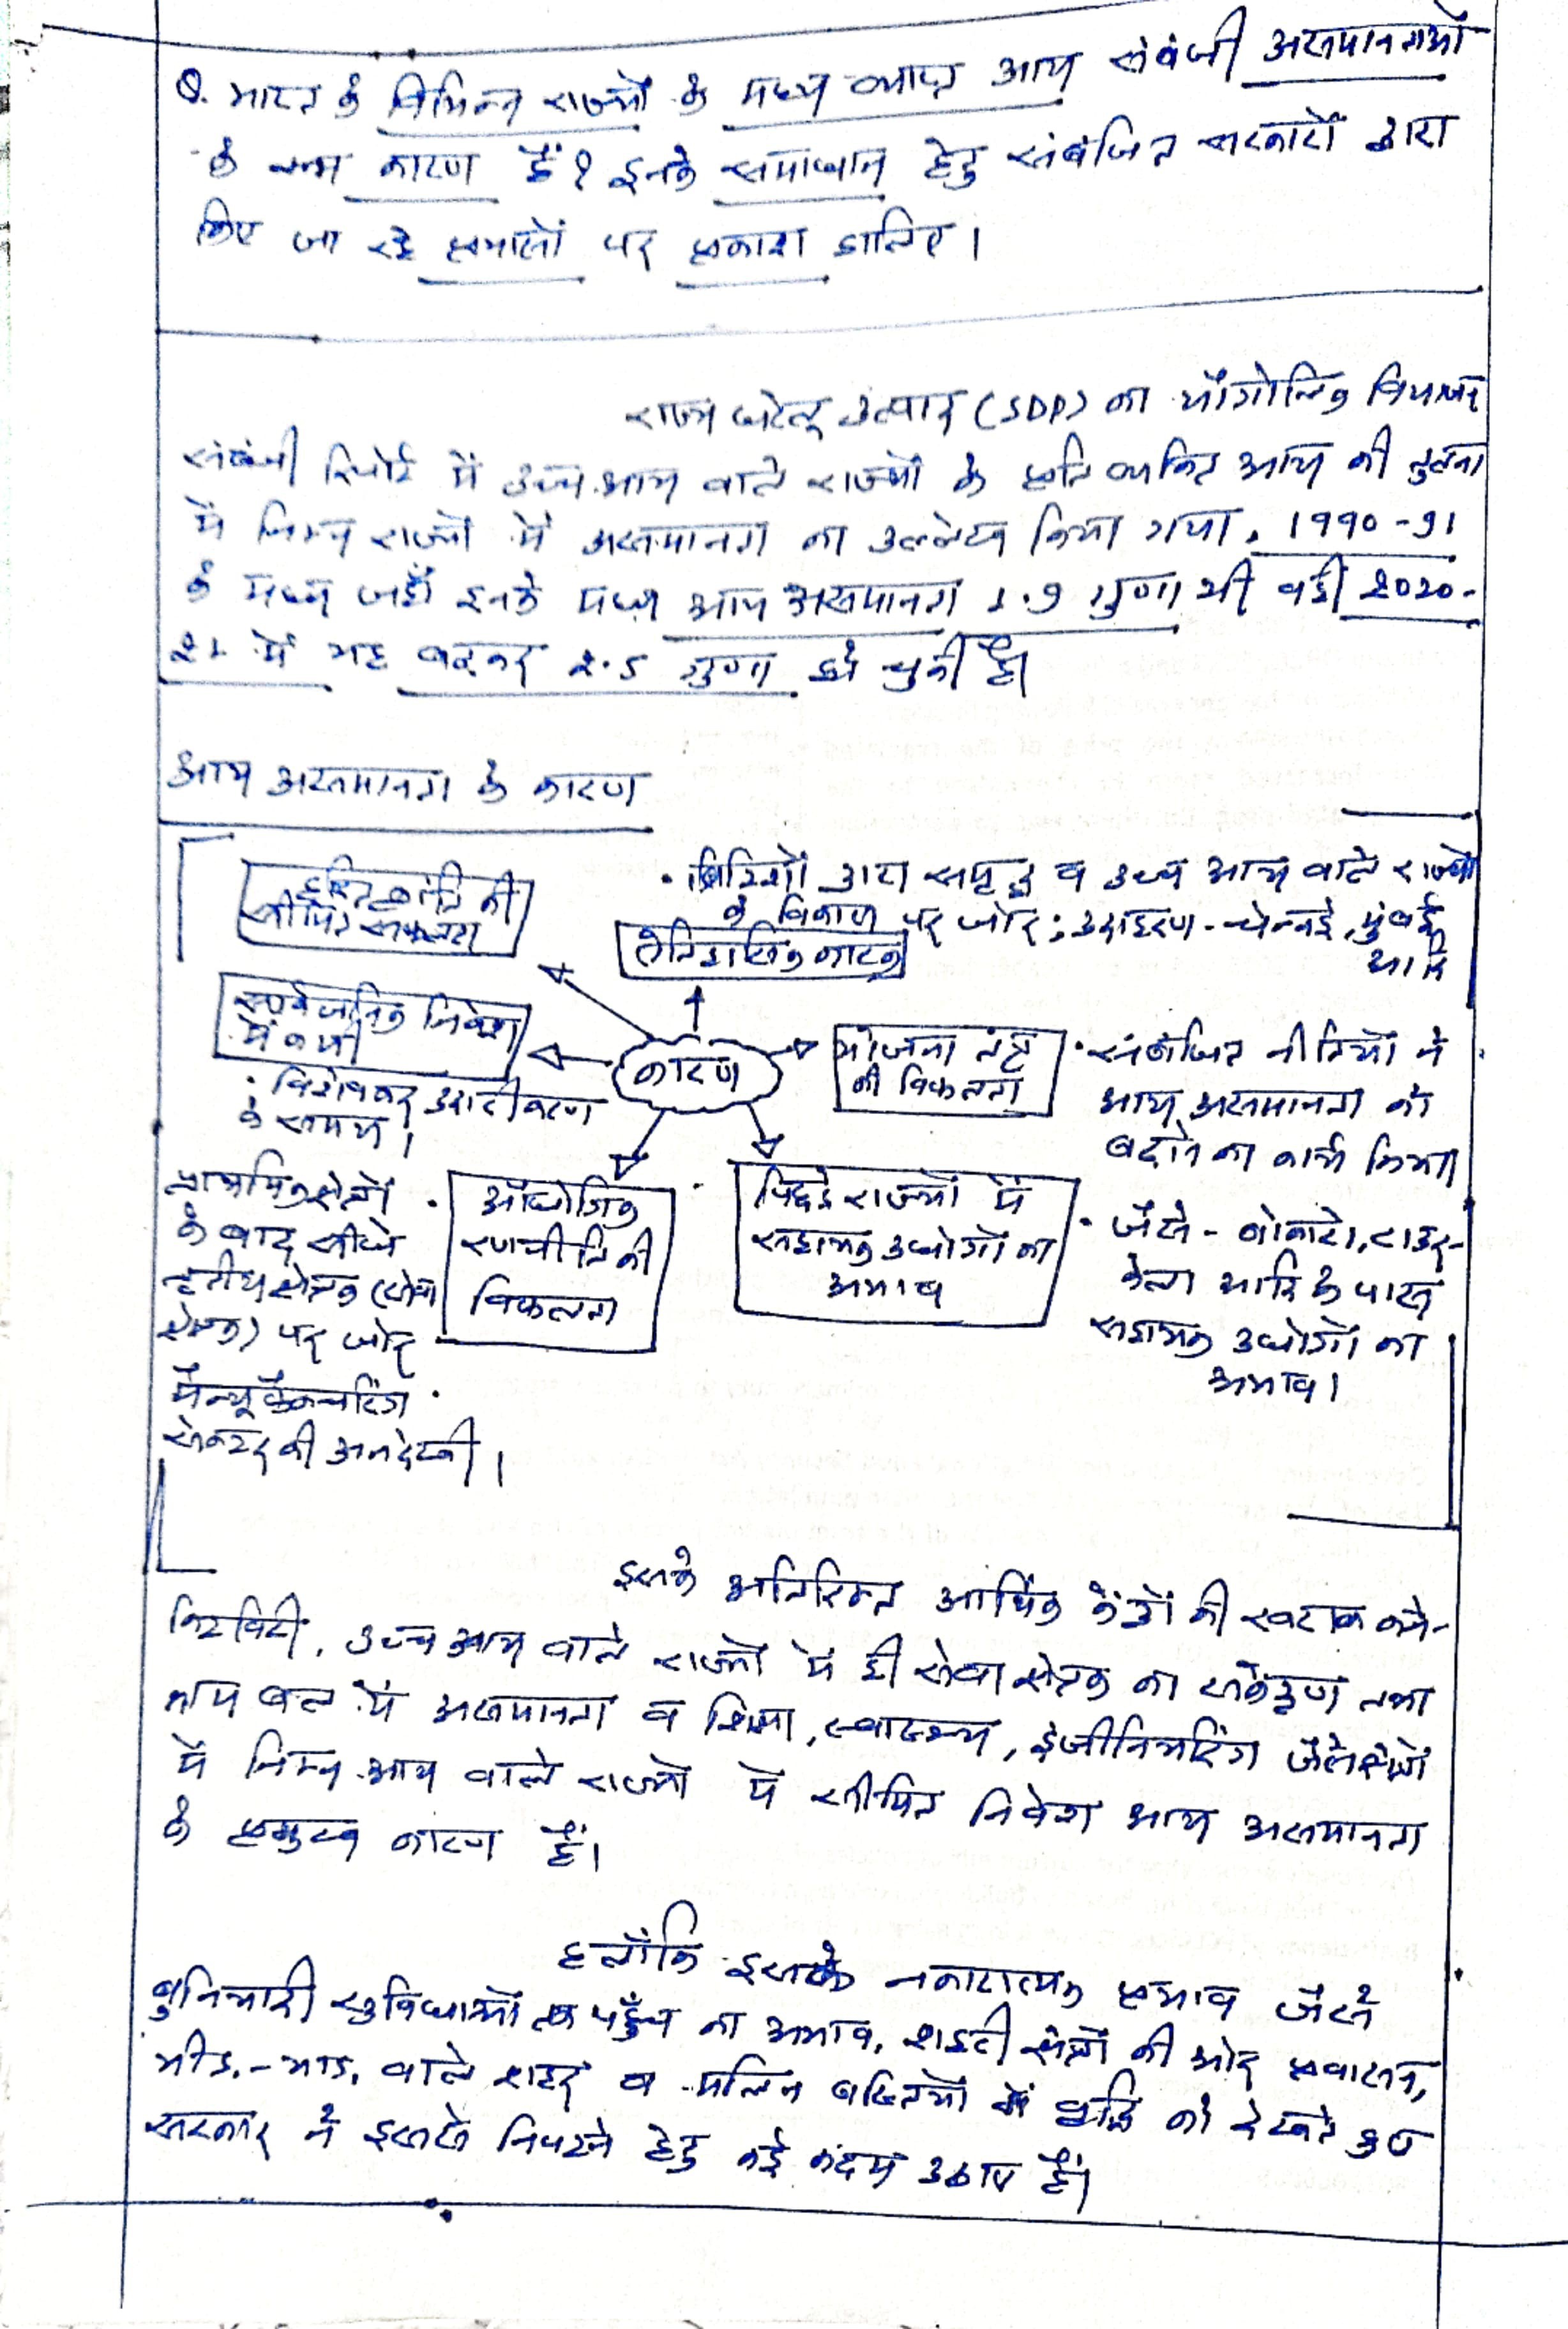 Q. भारत के विभिन्न राज्यों के मध्य व्याप्त आय संबंधी असमानताओं
के क्या कारण हैं? इनके समाधान हेतु संबंधित सरकारों द्वारा
किए जा रहे प्रयासों पर प्रकाश डालिए।
राज्य घरेलू उत्पाद (SDP) का भौगोलिक विभाजन
संबंधी रिपोर्ट में उच्च आय वाले राज्यों के प्रति व्यक्ति आय की तुलना
में निम्न राज्यों में असमानता का उल्लेख किया गया, 1990-91
के मध्य जहाँ इनके मध्य आय असमानता 1.9 गुणा थी वही 2020-
21 में यह बढ़कर 2.5 गुणा हो चुकी है।
आय असमानता के कारण
हरित क्रांति की
सीमित सफलता
• ब्रिटिशों द्वारा समृद्ध व उच्च आय वाले राज्यों
के विकास पर जोर; उदाहरण - चेन्नई, मुंबई
आदि
ऐतिहासिक कारक
सार्वजनिक निवेश
में कमी
: विशेषकर उदारीकरण
के समय।
कारण
योजना तंत्र
की विफलता
• संबंधित नीतियों ने
आय असमानता को
बढ़ाने का कार्य किया
प्राथमिक क्षेत्रों •
के बाद सीधे
तृतीय क्षेत्रक (सेवा
क्षेत्रक) पर जोर
मैन्यूफैक्चरिंग •
सेक्टर की अनदेखी।
औद्योगिक
रणनीति की
विफलता
पिछड़े राज्यों में
सहायक उद्योगों का
अभाव
• जैसे - बोकारो, राउर-
केला आदि के पास
सहायक उद्योगों का
अभाव।
इसके अतिरिक्त आर्थिक केंद्रों की खराब कने-
क्टिविटी, उच्च आय वाले राज्यों में ही सेवा क्षेत्रक का संकेंद्रण तथा
श्रम बल में असमानता व शिक्षा, स्वास्थ्य, इंजीनियरिंग जैसे क्षेत्रों
में निम्न आय वाले राज्यों में सीमित निवेश आय असमानता
के प्रमुख कारण हैं।
हलाँकि इसके नकारात्मक प्रभाव जैसे
बुनियादी सुविधाओं तक पहुँच का अभाव, शहरी क्षेत्रों की ओर प्रवासन,
भीड़-भाड़ वाले शहर व मलिन बस्तियों में वृद्धि को देखते हुए
सरकार ने इससे निपटने हेतु कई कदम उठाए हैं।